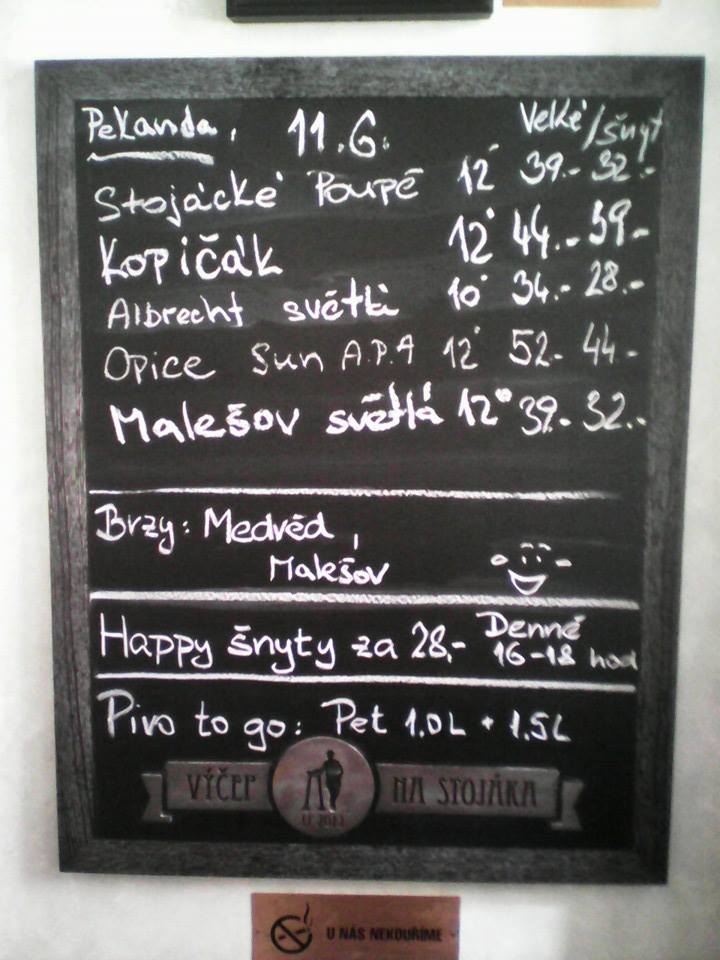 Pekanda, 11.6. Velké/šnyt
Stojácké Poupě 12° 39.- 32.-
Kopičák 12° 44.- 39.-
Albrecht světlá 10° 34.- 28.-
Opice Sun A.P.A 12° 52- 44-
Malešov světlá 12° 39.- 32.-
Brzy: Medvěd,
Malešov
Happy šnyty za 28,- Denně 16-18 hod
Pivo to go: Pet 1.0L + 1.5L
VÝČEP NA STOJÁKA
U NÁS NEKOUŘÍME